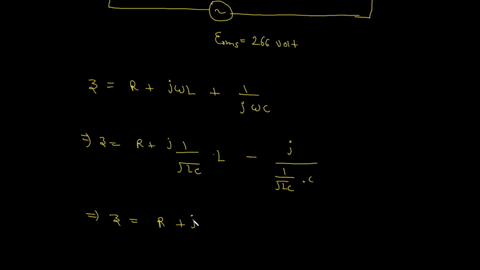 ~
Erms = 266 volt
Z = R + jωL + 1/jωC
⇒ Z = R + j 1/√LC · L − j/(1/√LC · C)
⇒ Z = R + j